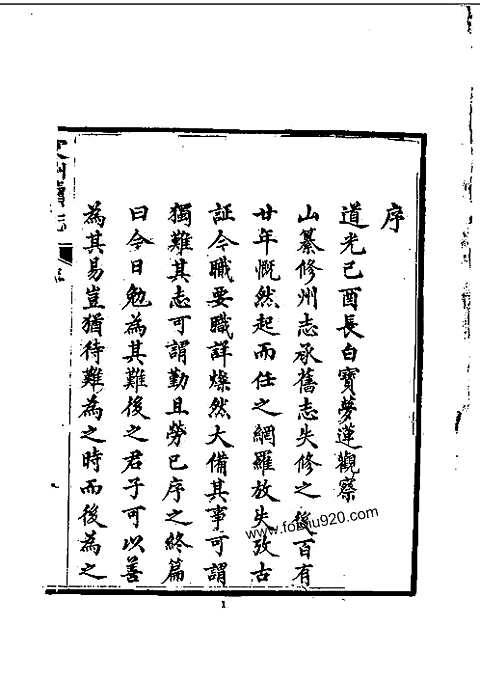 序
道光己酉長白寶夢蓮觀察
山纂修州志承舊志失修之後百有
廿年慨然起而任之網羅放失攷古
証今職要職詳燦然大備其事可謂
獨難其志可謂勤且勞已序之終篇
曰今日勉為其難後之君子可以善
為其易豈猶待難為之時而後為之
州續志
序
www.foshu920.com
1